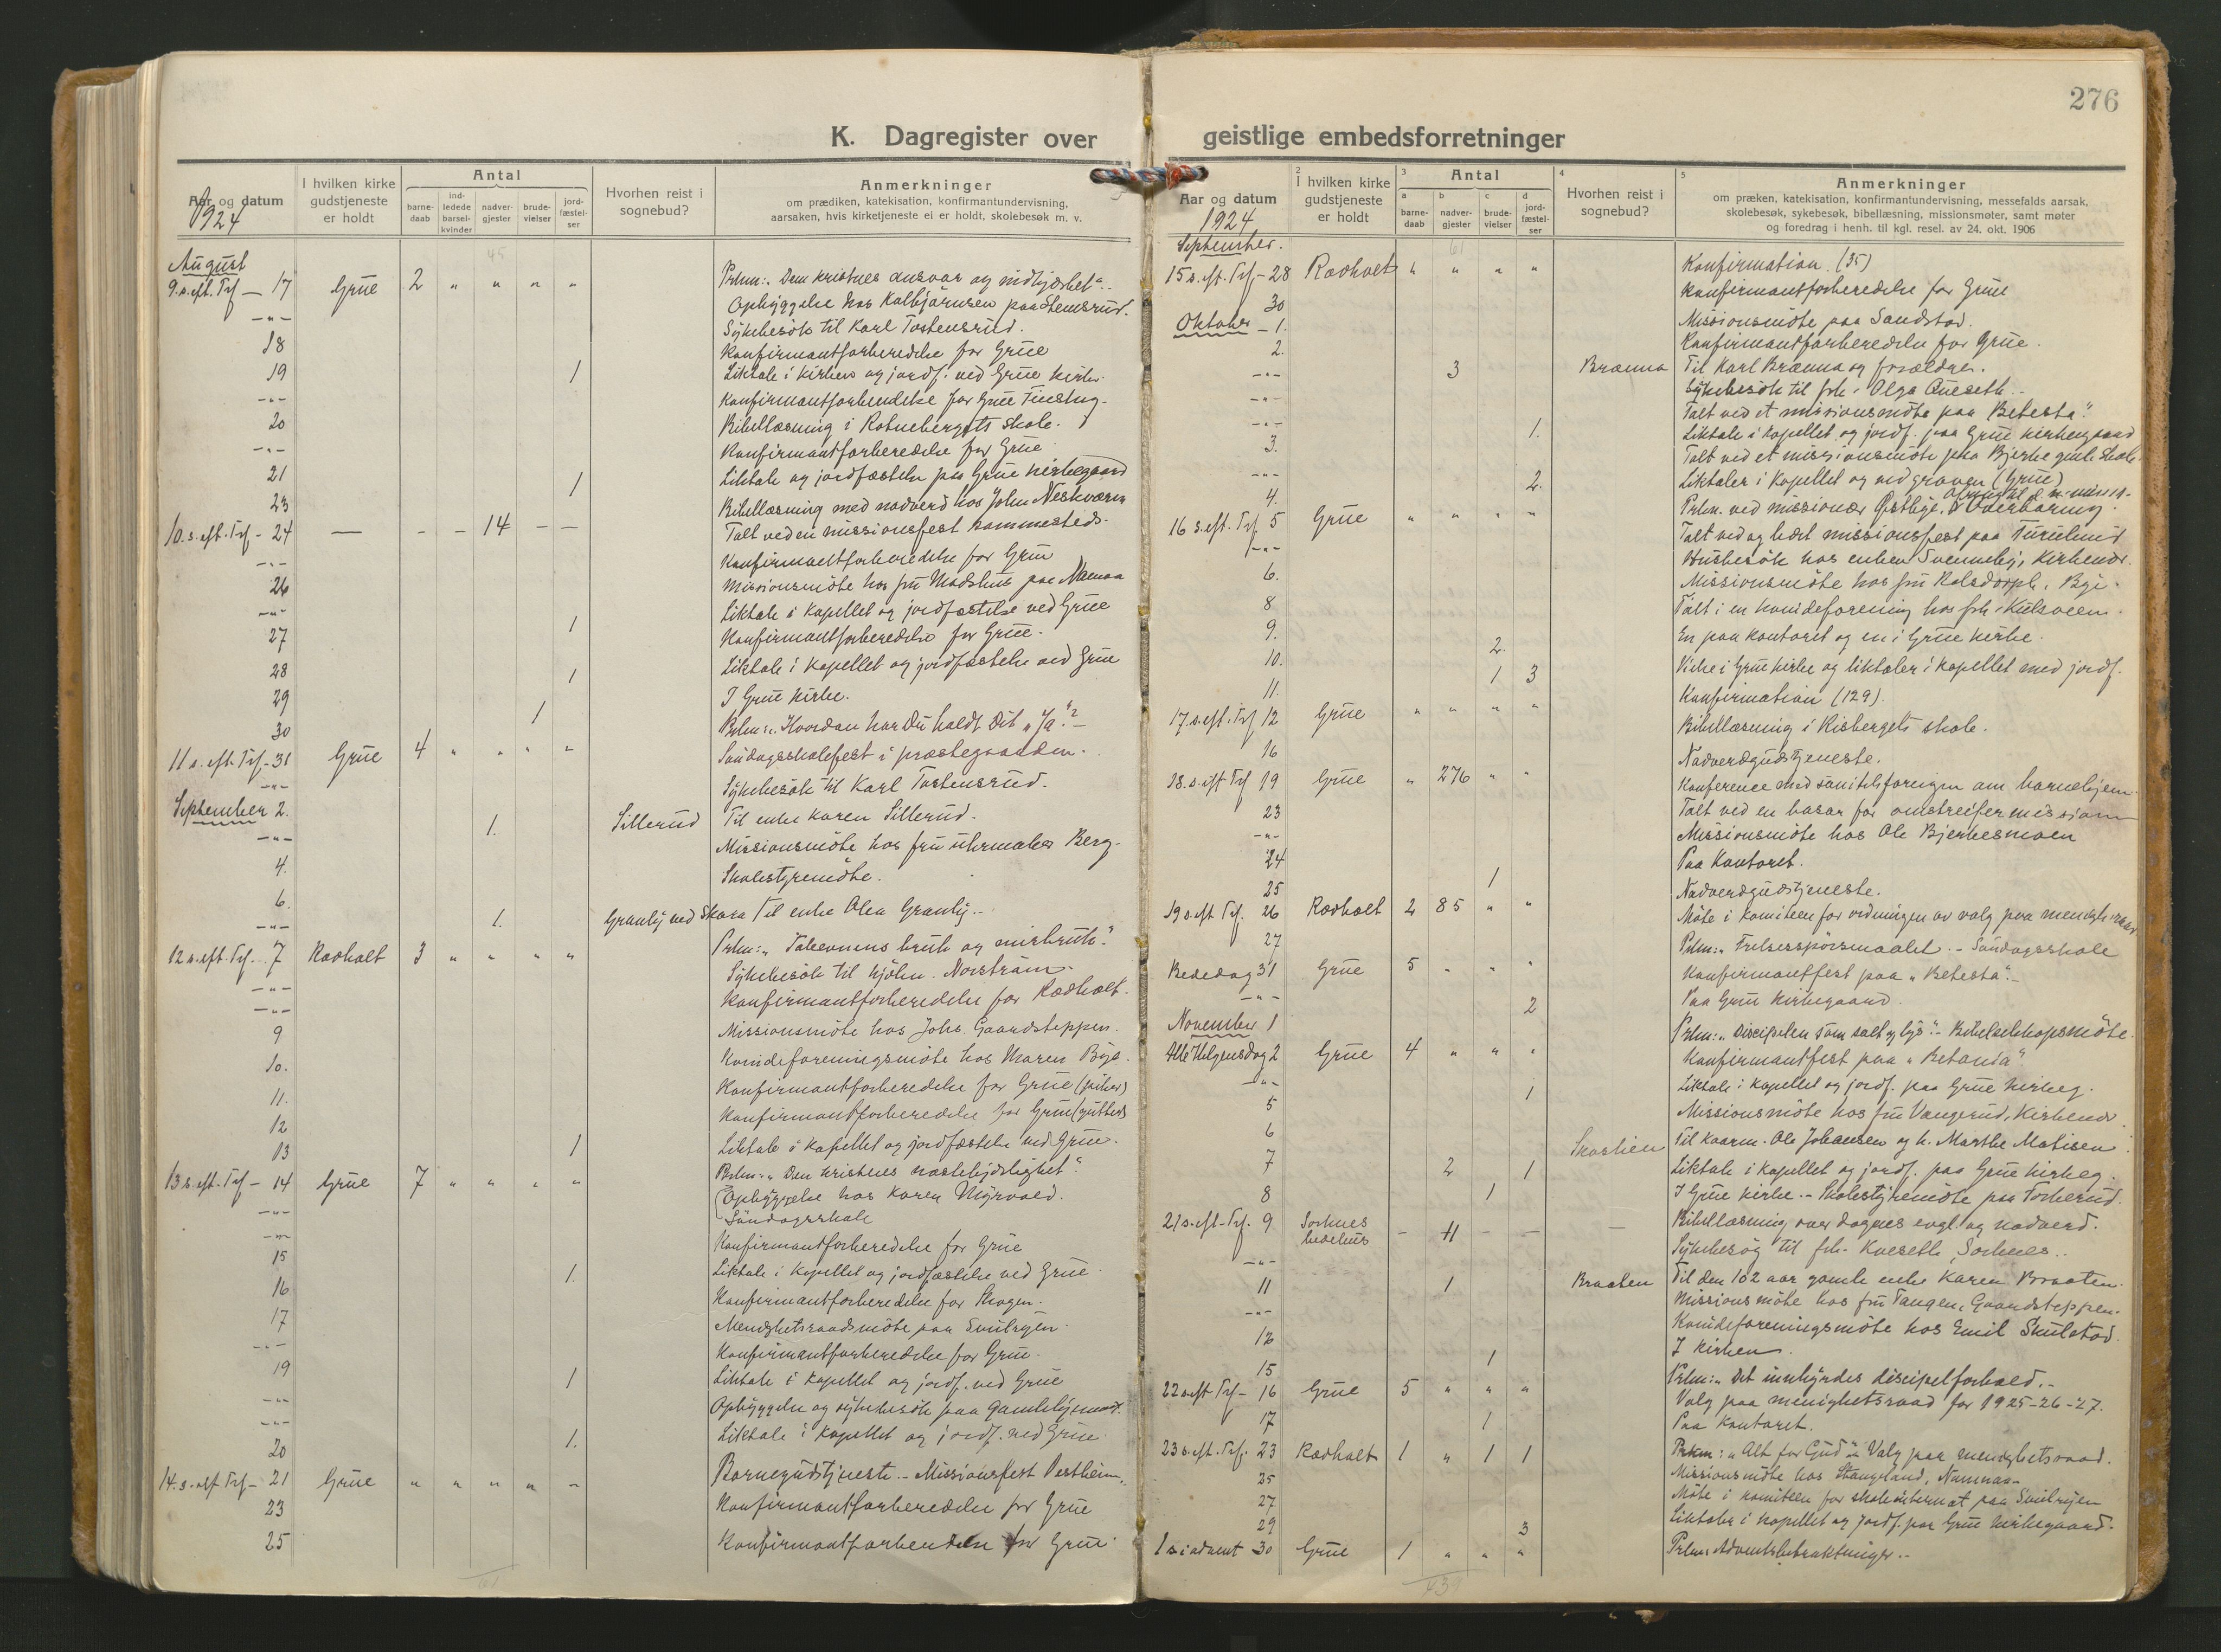 276
K. Dagregister over geistlige embedsforretninger
Aar og datum
I hvilken kirke gudstjeneste er holdt
Antal
barne-daab
ind-ledede barsel-kvinder
nadver-gjester
brude-vielser
jord-fæstel-ser
Hvorhen reist i sognebud?
Anmerkninger
om prædiken, katekisation, konfirmantundervisning,
aarsaken, hvis kirketjeneste ei er holdt, skolebesøk m. v.
1924
August
9. s. eft. Trf — 17 Grue 2 " " " " Prkn: "Dem kristnes ansvar og nidkjærhet".
—"— Opbyggelse hos Kolbjørnsen paa Stemsrud.
18 Sykebesök til Karl Tostensrud.
19 1 Konfirmantforberedelse for Grue
—"— Liktale i kirken og jordf. ved Grue kirke.
20 Konfirmantforberedelse for Grue Finskog.
—"— Bibellæsning i Rotnebergets skole.
21 Konfirmantforberedelse for Grue
23 1 Liktale og jordfæstelse paa Grue kirkegaard
10. s. eft. Trf - 24 — - - 14 — — Bibellæsning med nadverd hos John Neskværn
—"— Talt ved en missionsfest sammesteds.
26 Konfirmantforberedelse for Grue
—"— Missionsmöte hos fru Madshus paa Namnaa
27 1 Liktale i kapellet og jordfæstelse ved Grue
28 Konfirmantforberedelse for Grue.
29 1 Liktale i kapellet og jordfæstelse ved Grue
30 1 I Grue kirke.
11 s. eft. Trf - 31 Grue 4 " " " " Prkn: "Hvordan har Du holdt Dit "Ja"?"
—"— Söndagsskolefest i præstegaarden.
September 2. Sykebesök til Karl Tostensrud.
—"— 1. Sillerud Til enke Karen Sillerud.
4. Missionsmöte hos fru uhrmaker Berg.
6. Skolestyremöte.
—"— 1. Granly ved Skara Til enke Olea Granly.
12 s. eft. Trf. 7 Rodhalt 3 " " " " Prkn: "Taleevnens bruk og misbruk".
—"— Sykebesök til kjöbm. Norström.
—"— Konfirmantforberedelse for Rodhalt.
9 Missionsmöte hos Johs. Gaardsteppen.
10. Kvindeforeningsmöte hos Maren Bye.
11. Konfirmantforberedelse for Grue (piker)
12 Konfirmantforberedelse for Grue (gutter)
13 1 Liktale i kapellet og jordfæstelse ved Grue.
13 s. eft. Trf — 14 Grue 7 " " " " Prkn: "Den kristnes næstekjærlighet".
—"— Opbyggelse hos Karen Myrvold.
Söndagsskole
15 Konfirmantforberedelse for Grue
16 1. Liktale i kapellet og jordfæstelse ved Grue
17 Konfirmantforberedelse for Skogen.
—"— Menighetsraadsmöte paa Solbyen.
19 Konfirmantforberedelse for Grue.
—"— 1 Liktale i kapellet og jordf. ved Grue
—"— Opbyggelse og sykebesök paa gamlehjemmet.
20 1. Liktale i kapellet og jordf. ved Grue
14. s. eft Trf — 21 Grue " " " " " Barnegudstjeneste - Missionsfest Vestheim.
23 Konfirmantforberedelse for Grue
25 Konfirmantforberedelse for Grue
Aar og datum
I hvilken kirke gudstjeneste er holdt
Antal
barne-daab
nadver-gjester
brude-vielser
jord-fæstel-ser
Hvorhen reist i sognebud?
Anmerkninger
om præken, katekisation, konfirmantundervisning, messefalds aarsak,
skolebesøk, sykebesøk, bibellæsning, missionsmøter, samt møter
og foredrag i henh. til kgl. resel. av 24. okt. 1906
1924
September.
15 s. eft. Trf - 28 Rodhalt " " " " Konfirmation. (35)
30 Konfirmantforberedelse for Grue
Oktober - 1. Missionsmöte paa Sandstad.
2. Konfirmantforberedelse for Grue.
—"— 3 Brænna Til Karl Brænna og forældre.
—"— Sykebesök til frk. Olga Qveseth.
—"— Talt ved et missionsmöte paa "Betesta".
3. 1. Liktale i kapellet og jordf. paa Grue kirkegaard
—"— Talt ved et missionsmöte paa Bjerke gamle skole.
4. 2. Liktaler i kapellet og ved graven (Grue)
16 s. eft. Trf 5 Grue " " " " Prkn. ved missionær Østbye.
—"— Talt ved og ledet missionsfest paa
6. Husbesök hos enken Svenneby, Kirkenær.
8 Missionsmöte hos fru Rolsdorph, Bye.
9. Talt i en kvindeforening hos frk. Kulsveen.
10. 2. En paa kontoret og en i Grue kirke.
11. 1 3 Vielse i Grue kirke og liktaler i kapellet med jordf.
17. s. eft. Trf 12 Grue " " " " Konfirmation (129).
16 Bibellæsning i Risbergets skole.
18. s. eft Trf 19 Grue " 276 " " Nadverdgudstjeneste.
23 Konference med sanitetsforeningen om barnehjem.
—"— Talt ved en basar for omstreifermissionen
24 Missionsmöte hos Ole Bjerkesmoen
25 1 Paa kontoret.
19 s. eft Trf. 26 Rodhalt 2 85 " " Nadverdgudstjeneste.
27 Möte i komiteen for ordningen av valg paa menighetsraad
Bededag 31 Grue 5 " " " Prkn: "Frelsesspörsmaalet". - Söndagsskole
—"— Konfirmantfest paa "Betesta".
November 1 2 Paa Grue kirkegaard.
Alle Helgensdag 2 Grue 4 " " " Prkn: "Disciplen som salt og lys". - Bibelselskapsmöte.
—"— Konfirmantfest paa "Betania"
5 1 Liktale i kapellet og jordf. paa Grue kirkeg.
6 Missionsmöte hos fru Vangerud, Kirkenær
7 2 1 Skaslien Til kaarm. Ole Johansen og h. Marthe Matisen
8 1 Liktale i kapellet og jordf. paa Grue kirkeg.
I Grue kirke. - Skolestyremöte paa Forberud.
21 s. eft. Trf. 9 Sorknes bedehus - 11 — — — Bibellæsning over dagens evgl. og nadverd.
—"— Sykebesøg til frk. Kveseth, Sorknes.
11 1 Braaten Til den 102 aar gamle enke Karen Braaten.
—"— Missionsmöte hos fru Tangen, Gaardsteppen.
12 Kvindeforeningsmöte hos Emil Skulstad.
15 1 I kirken.
22 s. eft Trf - 16 Grue 5 " " " Prkn: "Det innbyrdes discipelforhold".
Valg paa menighetsraad for 1925-26-27.
17 1 Paa kontoret.
23 s. eft. Trf. 23 Rodhalt 1 " 1 1 Prkn: "Alt for Gud". Valg paa menighetsraad.
25 Missionsmöte hos Stangeland, Namnaa.
27 Möte i komiteen for skoleinternat paa Solbyen
29 3 Liktaler i kapellet og jordf. paa Grue kirkegaard.
1 s i advent 30 Grue 1 " " " Prkn: Adventsbetraktninger.